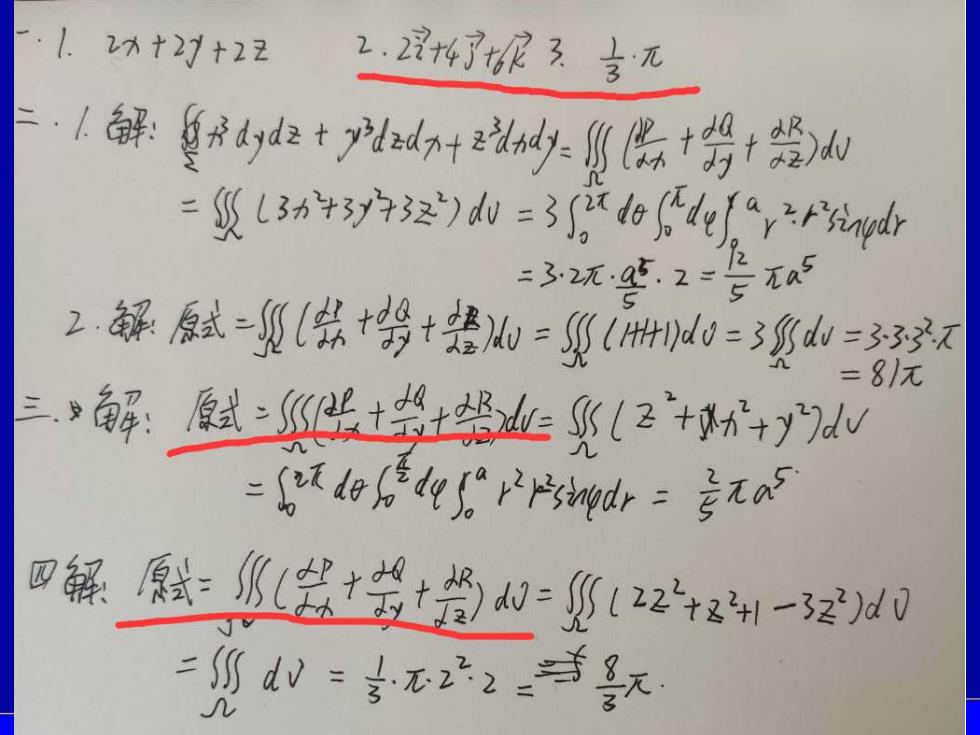 一.1. 2x+2y+2z  2. 2i⃗+4j⃗+6k⃗  3. 1/3·π
二.1.解: ∯_Σ x³dydz + y³dzdx + z³dxdy = ∭_Ω (dP/dx + dQ/dy + dR/dz)dv
= ∭_Ω (3x²+3y²+3z²)dv = 3∫₀^{2π}dθ∫₀^π dφ∫₀^a r²·r²sinφdr
= 3·2π·a⁵/5·2 = 12/5 πa⁵
2.解: 原式 = ∭_Ω (dP/dx + dQ/dy + dR/dz)dv = ∭_Ω (1+1+1)dv = 3∭_Ω dv = 3·3·3²·π
= 81π
三.解: 原式 = ∭_Ω (dP/dx + dQ/dy + dR/dz)dv = ∭_Ω (z²+x²+y²)dv
= ∫₀^{2π}dθ∫₀^{π/2}dφ∫₀^a r²r²sinφdr = 2/5 πa⁵
四解: 原式 = ∭(dP/dx + dQ/dy + dR/dz)dv = ∭_Ω (2z²+z²+1-3z²)dv
= ∭_Ω dv = 1/3·π·2²·2 = 8/3 π.